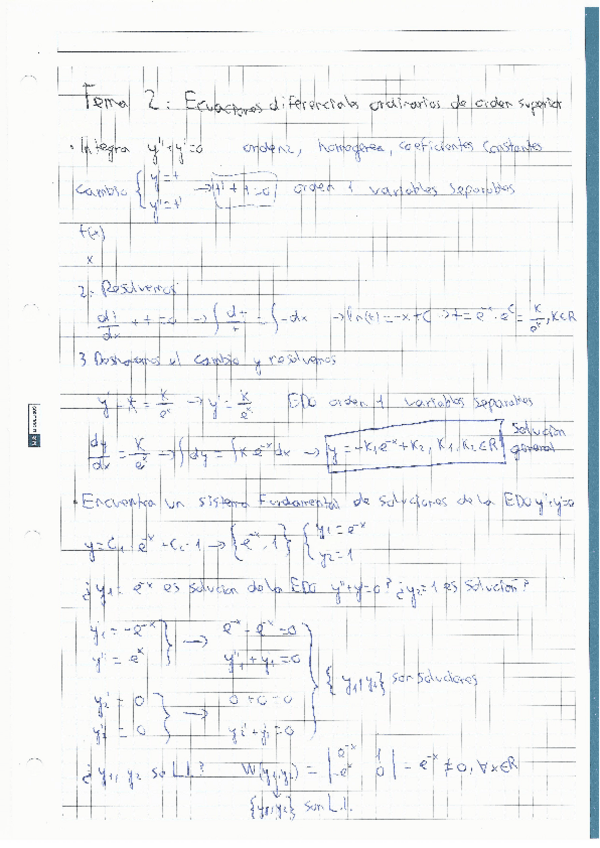 Tema 2: Ecuaciones diferenciales ordinarias de orden superior
· Integra y''+y'=0 orden 2, homogénea, coeficientes constantes
Cambio { y'=t y''=t' → t'+t=0 orden 1 variables separables
t(x)
x
2.- Resolvemos
dt/dx + t = 0 → ∫ dt/t = ∫ -dx → ln(t) = -x + C → t = e^-x · e^C = K/e^x, K∈R
3 Deshacemos el cambio y resolvemos
y' = t = K/e^x → y' = K/e^x EDO orden 1 variables separables
dy/dx = K/e^x → ∫ dy = ∫ K·e^-x dx → y = -K1 e^-x + K2, K1, K2 ∈ R Solución general
· Encuentra un sistema fundamental de soluciones de la EDO y''+y'=0
y = C1 · e^-x + C2 · 1 → {e^-x, 1} { y1 = e^-x y2 = 1
¿y1 = e^-x es solución de la EDO y''+y'=0? ¿y2=1 es solución?
y1' = -e^-x } → e^-x - e^-x = 0
y1'' = e^-x y1'' + y1' = 0
{y1, y2} son soluciones
y2' = 0 } → 0+0=0
y2'' = 0 y2'' + y2' = 0
¿y1, y2 son L.I.? W(y1,y2) = | e^-x 1 -e^-x 0 | = e^-x ≠ 0, ∀x∈R
{y1, y2} son L.I.